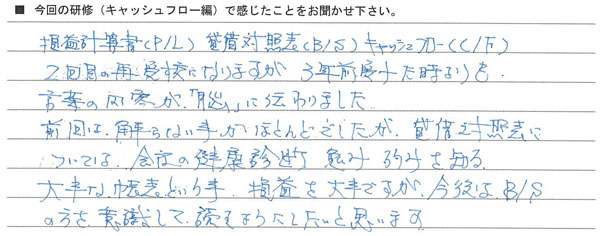 ■ 今回の研修（キャッシュフロー編）で感じたことをお聞かせ下さい。
損益計算書(P/L) 貸借対照表(B/S) キャッシュフロー(C/F)
2回目の再受検になりますが 3年前受けた時よりも
言葉の内容が、「脳」に伝わりました
前回は、解らない事がほとんどでしたが、貸借対照表に
ついては、会社の健康診断 強み 弱みを知る
大事な 表という事、損益も大事ですが、今後は、B/S
の方を、意識して、読むようにしたいと思います